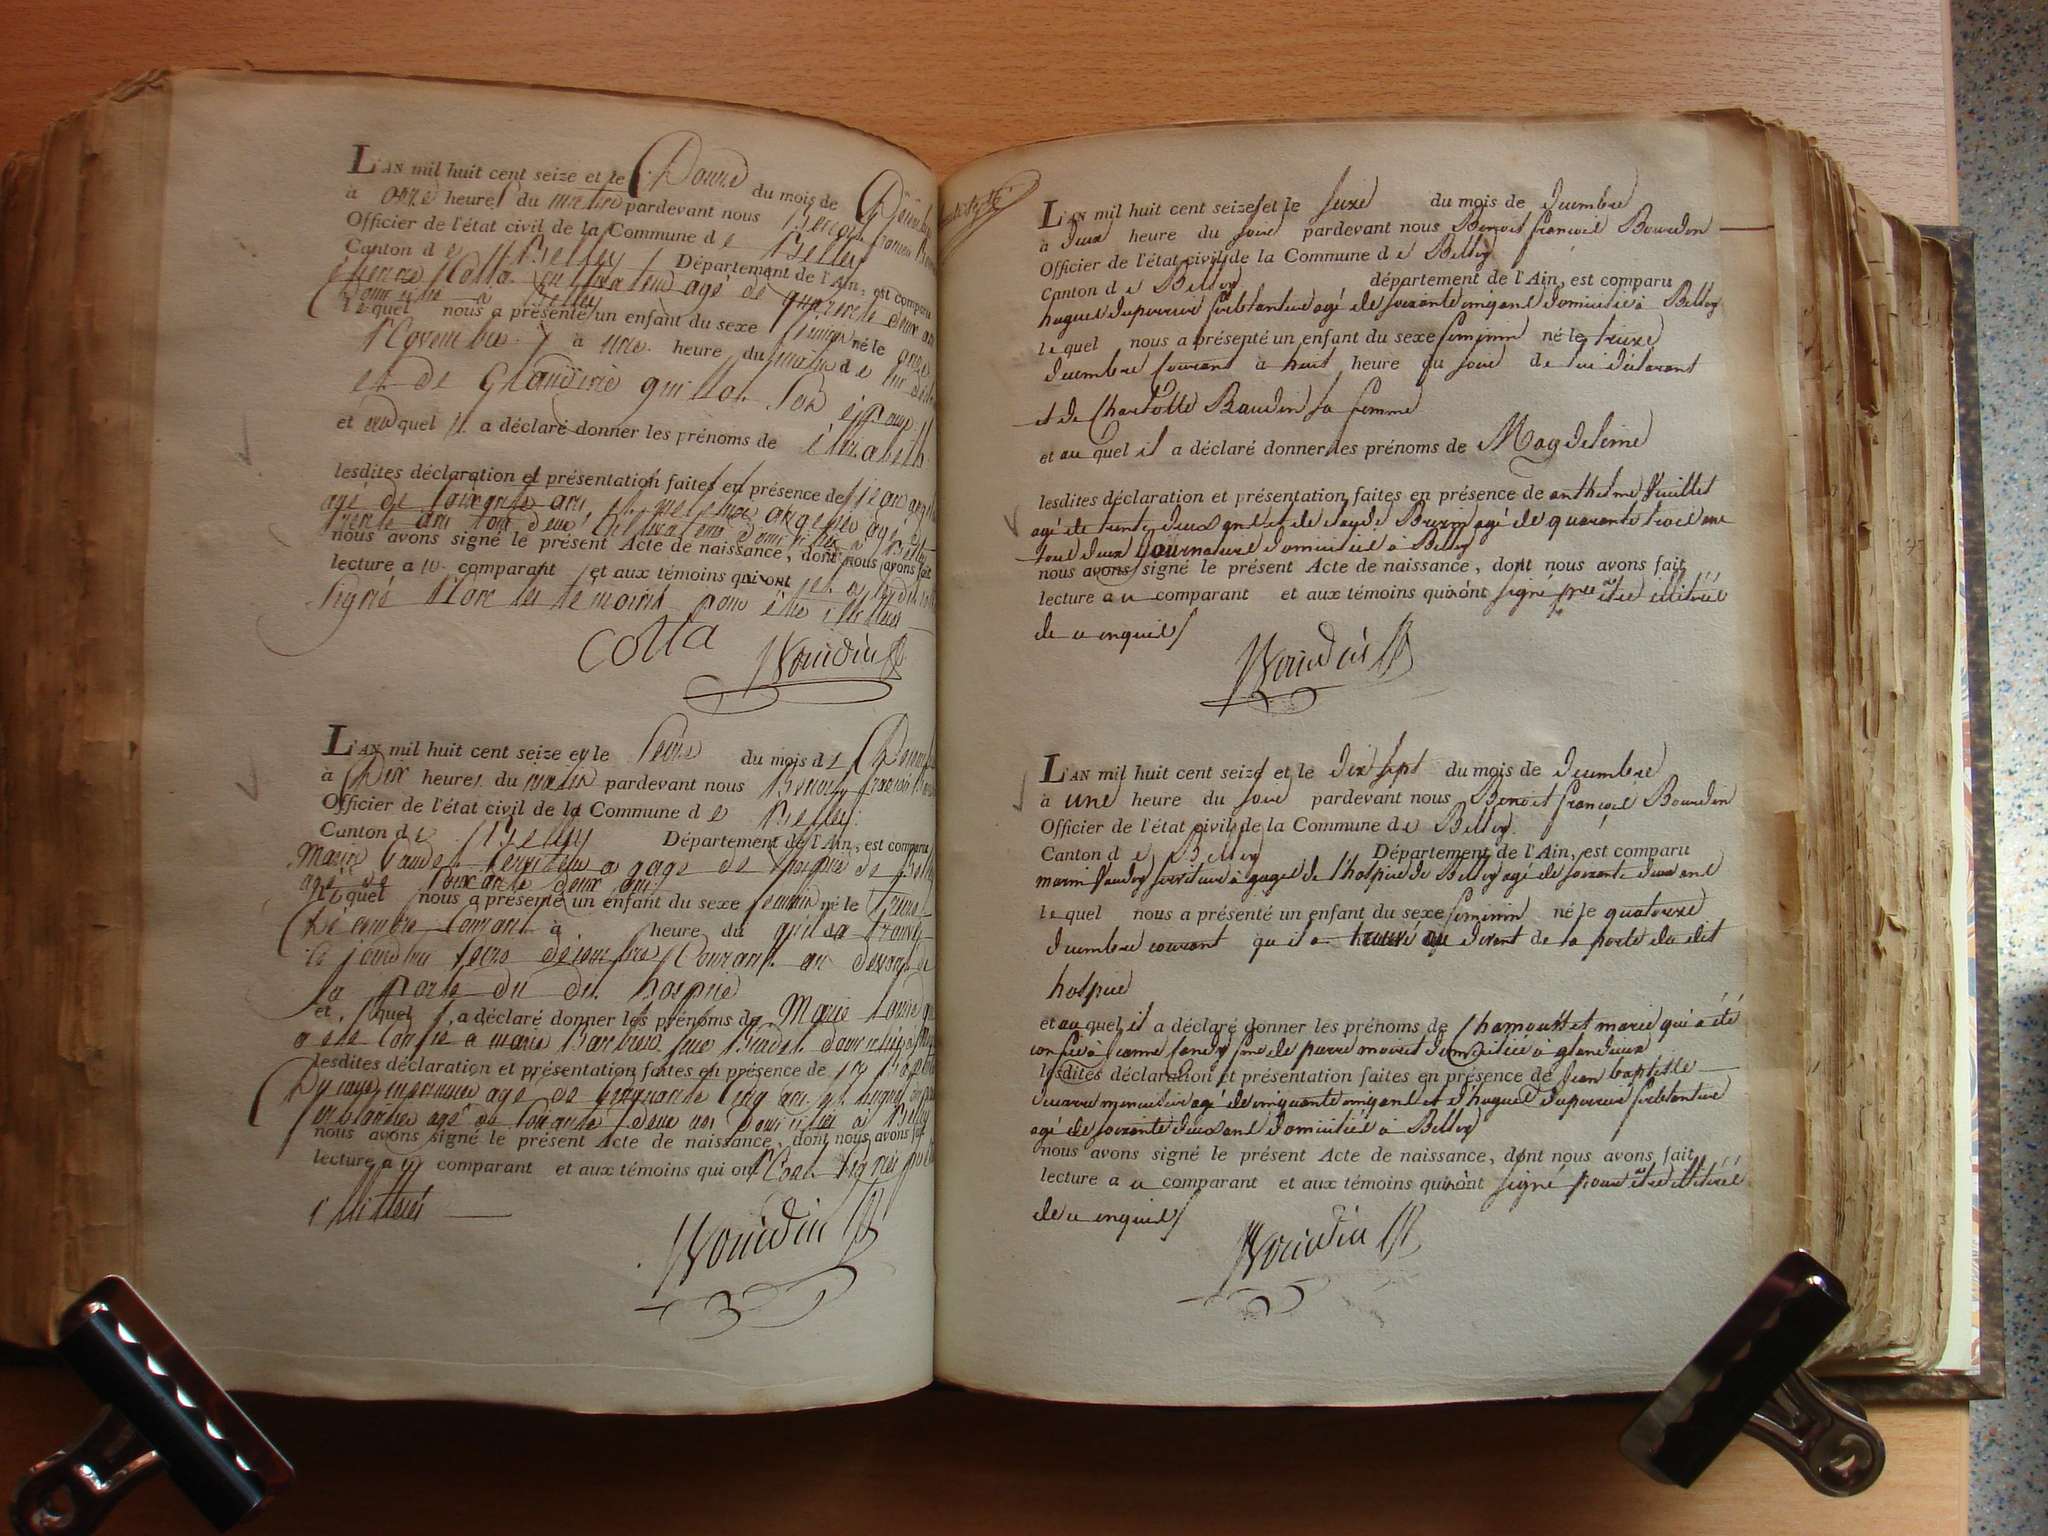 L'AN mil huit cent seize et le Douze du mois de Décembre
à onze heures du matin pardevant nous Benoit francois
Officier de l'état civil de la Commune de Belley
Canton de Belley Département de l'Ain, est comparu
Cotta cultivateur agé de quarante deux ans
domicilié à Belley
lequel nous a présenté un enfant du sexe féminin né le onze
Novembre à une heure du matin de lui déclarant
et de Claudine guillot son épouse
et auquel il a déclaré donner les prénoms de Elizabeth
lesdites déclaration et présentation faites en présence de jean
agé de soixante ans et agé de
trente ans tous deux cultivateurs domiciliés à Belley
nous avons signé le présent Acte de naissance, dont nous avons fait
lecture au comparant et aux témoins qui ont
signé non les temoins pour être illitérés
Cotta Bourdin
L'AN mil huit cent seize et le seize du mois de Décembre
à Dix heures du matin pardevant nous Benoit francois
Officier de l'état civil de la Commune de Belley
Canton de Belley Département de l'Ain, est comparu
Marin Vaudey serviteur a gage de l'hospice de Belley
agé de soixante deux ans
lequel nous a présenté un enfant du sexe feminin né le
Décembre courant à heure du qu'il a trouvé
ce jourdhui seize décembre courant au devant de
la porte du dit hospice
et quel a déclaré donner les prénoms de Marie Louise qui
a été confié a marie
lesdites déclaration et présentation faites en présence de
agé de cinquante cinq ans et
agé de soixante deux ans domiciliés à Belley
nous avons signé le présent Acte de naissance, dont nous avons fait
lecture au comparant et aux témoins qui ont non signé pour
illitérés
Bourdin
L'AN mil huit cent seize et le seize du mois de décembre
à deux heure du soir pardevant nous Benoit françois Bourdin
Officier de l'état civil de la Commune de Belley
Canton de Belley département de l'Ain, est comparu
hugues duperrier ferblantier agé de soixante cinq ans domicilié à Belley
lequel nous a présenté un enfant du sexe féminin né le treize
decembre courant à huit heure du soir de lui déclarant
et de Charlotte Baudin sa femme
et au quel il a déclaré donner les prénoms de Magdeleine
lesdites déclaration et présentation faites en présence de anthelme Vuillet
agé de trente deux ans et de Claude Buzin agé de quarante trois ans
tous deux journaliers domiciliés à Belley
nous avons signé le présent Acte de naissance, dont nous avons fait
lecture au comparant et aux témoins qui n'ont signé pour être illitérés
de ce enquis
Bourdin
L'AN mil huit cent seize et le dix sept du mois de decembre
à une heure du soir pardevant nous Benoit françois Bourdin
Officier de l'état civil de la Commune de Belley
Canton de Belley Département de l'Ain, est comparu
marin Vaudey serviteur à gages de l'hospice de Belley agé de soixante deux ans
lequel nous a présenté un enfant du sexe féminin né le quatorze
decembre courant qu il a trouvé au devant de la porte du dit
hospice
et au quel il a déclaré donner les prénoms de Chamousset marie qui a été
confié à jeanne femme de pierre domiciliée à glandieux
lesdites déclaration et présentation faites en présence de Jean baptiste
agé de cinquante cinq ans et d'hugues duperrier ferblantier
agé de soixante deux ans domiciliés à Belley
nous avons signé le présent Acte de naissance, dont nous avons fait
lecture au comparant et aux témoins qui n'ont signé pour être illitérés
de ce enquis
Bourdin